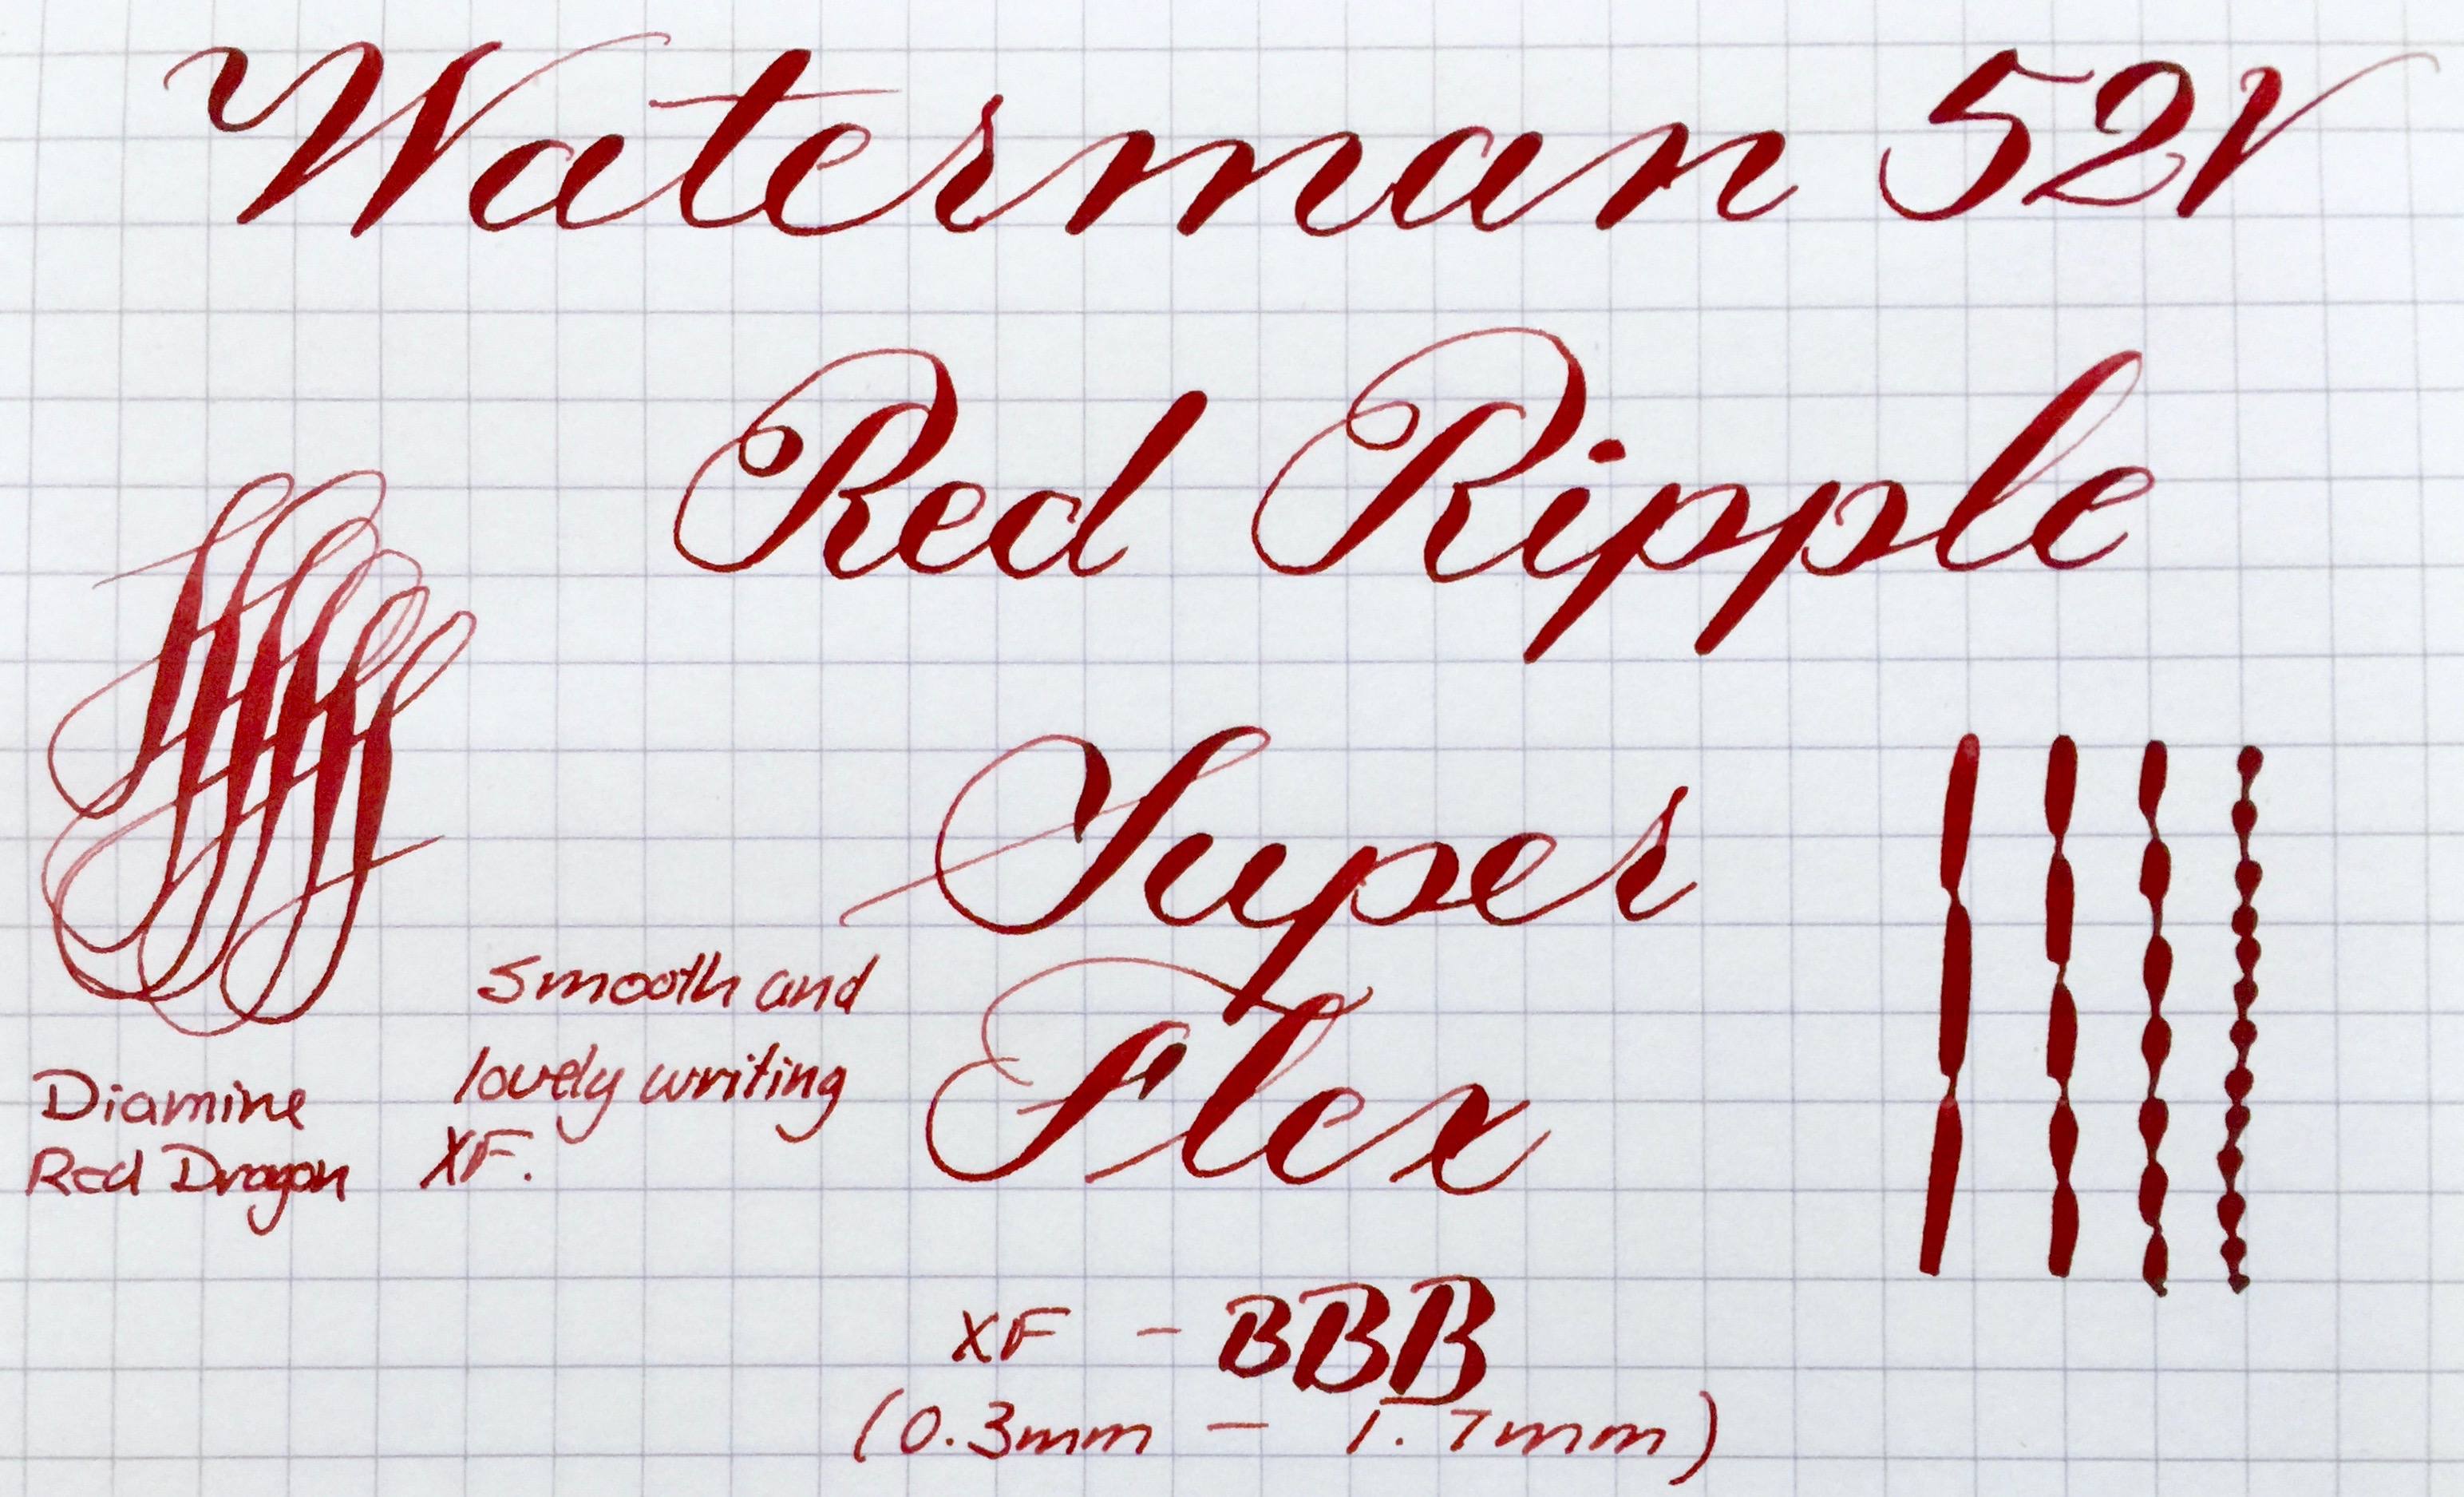 Waterman 52V
Red Ripple
Super
Flex
smooth and
lovely writing
XF.
Diamine
Red Dragon
XF - BBB
(0.3mm - 1.7mm)